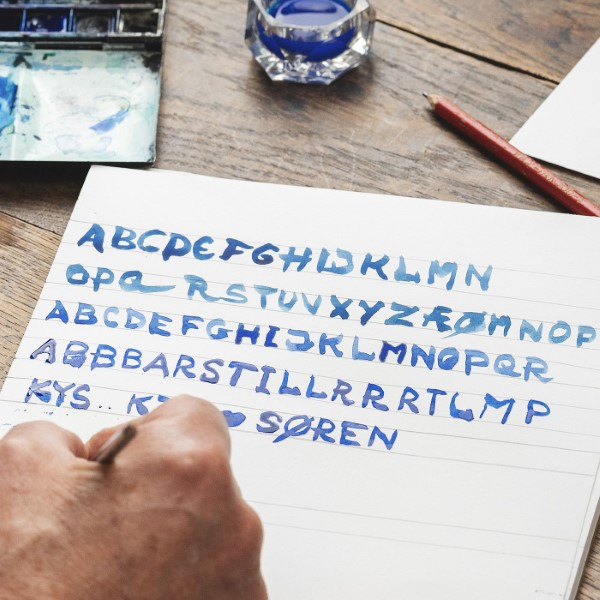 ABCDEFGHIJKLMN
OPQ RSTUVXYZÆØMNOP
ABCDEFGHIJKLMNOPQR
ABBBBARSTILLRRRRTLMP
KYS.. ♥ SØREN